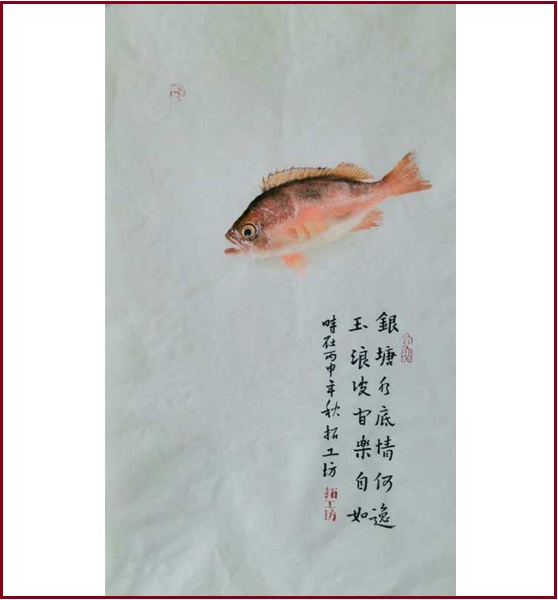 銀塘水底情何逸
玉浪波間樂自如
時在丙申年秋拓工坊
拓工坊